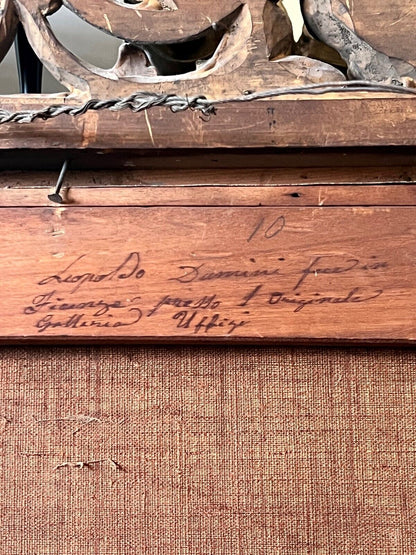 10
Leopoldo Dumini fece in
Firenze presso l Originale
Galleria Uffizi